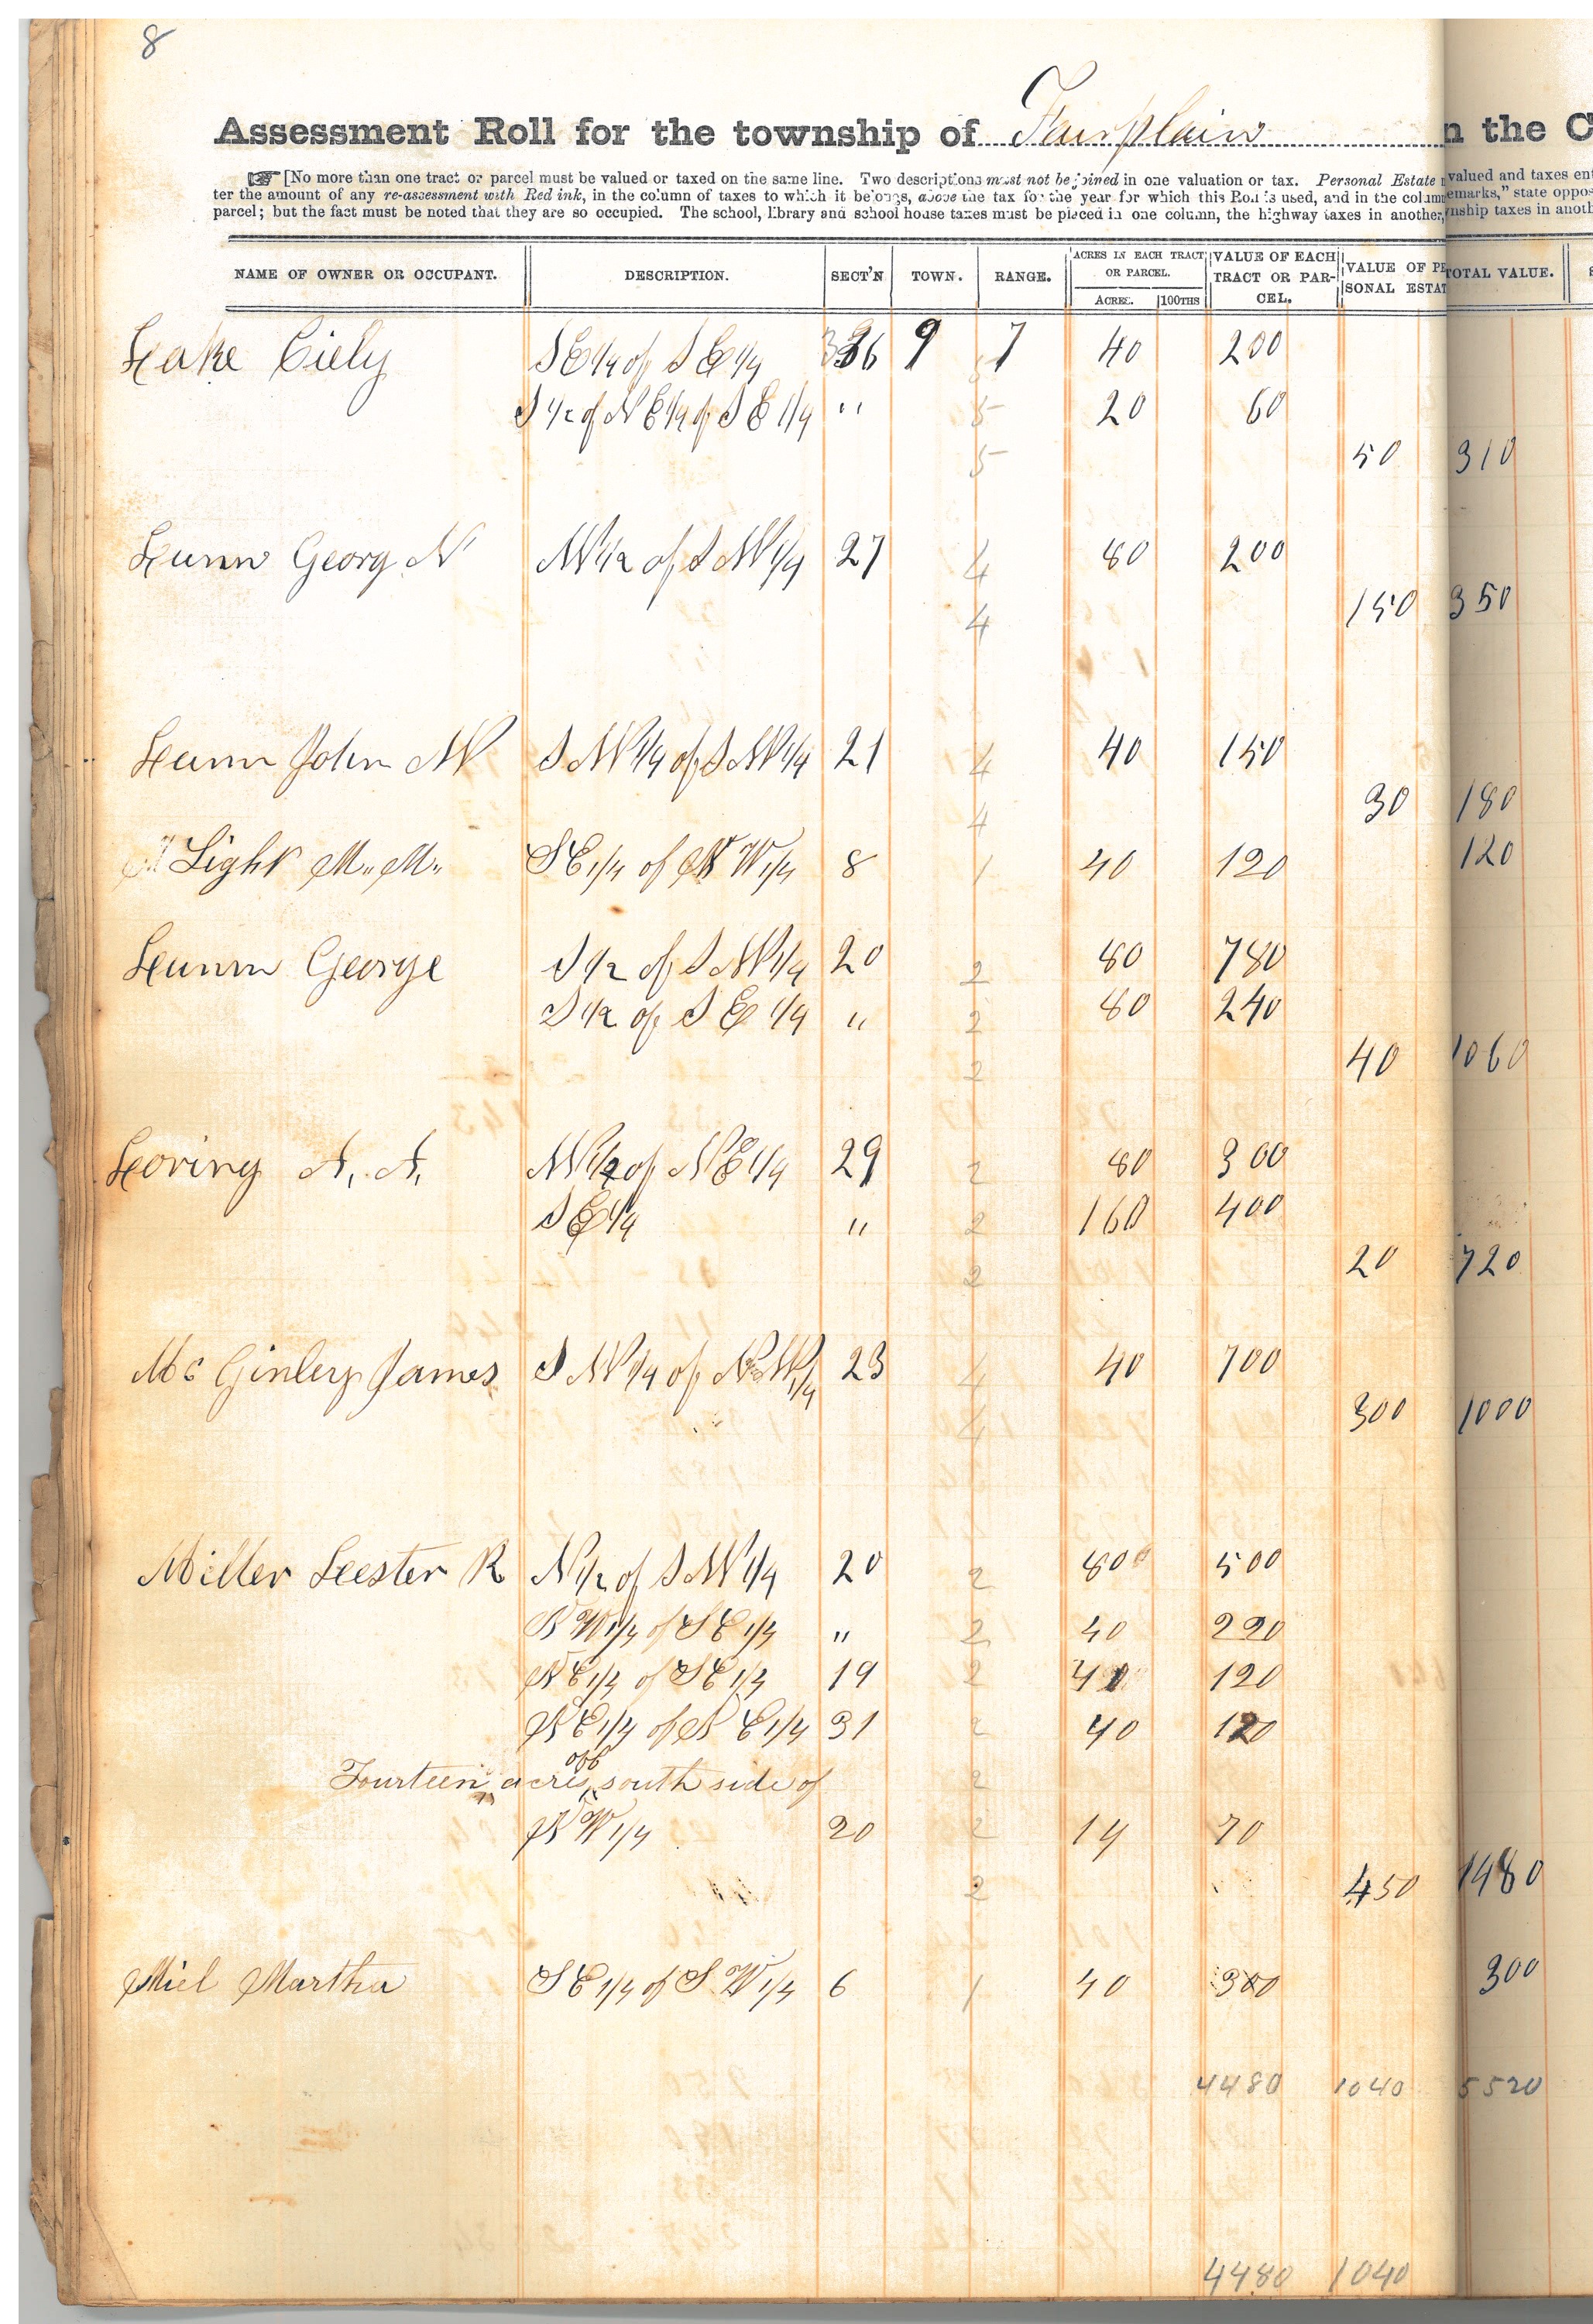 8
Assessment Roll for the township of Fairplain n the C
[No more than one tract or parcel must be valued or taxed on the same line. Two descriptions must not be joined in one valuation or tax. Personal Estate valued and taxes ent
ter the amount of any re-assessment with Red ink, in the column of taxes to which it belongs, above the tax for the year for which this Roll is used, and in the colum emarks," state oppos
parcel; but the fact must be noted that they are so occupied. The school, library and school house taxes must be placed in one column, the highway taxes in another, nship taxes in anoth
NAME OF OWNER OR OCCUPANT. DESCRIPTION. SECT'N TOWN. RANGE. ACRES IN EACH TRACT OR PARCEL. ACRES. 100THS VALUE OF EACH TRACT OR PAR-CEL. VALUE OF PE SONAL ESTAT OTAL VALUE.
Lake Ciely S E 1/4 of S E 1/4 36 9 7 40 200
S 1/2 of N E 1/4 of S E 1/4 " 5 20 60
5 50 310
Lunn Georg N W 1/2 of S W 1/4 27 4 80 200
4 150 350
Lunn John W S W 1/4 of S W 1/4 21 4 40 150
4 30 180
Light M. M. S E 1/4 of N W 1/4 8 1 40 120 120
Lunn George S 1/2 of S W 1/4 20 2 80 780
S 1/2 of S E 1/4 " 2 80 240
2 40 1060
Loring A. A. W 1/2 of N E 1/4 29 2 80 300
S E 1/4 " 2 160 400
2 20 720
Mc Ginley James S W 1/4 of N W 1/4 23 4 40 700
4 300 1000
Miller Leester R N 1/2 of S W 1/4 20 2 80 500
N W 1/4 of S E 1/4 " 2 40 220
N E 1/4 of S E 1/4 19 2 40 120
N E 1/4 of N E 1/4 31 2 40 120
Fourteen acres off south side of 2
N W 1/4 20 2 14 70
2 450 1480
Miel Martha S E 1/4 of S W 1/4 6 1 40 300 300
4480 1040 5520
4480 1040